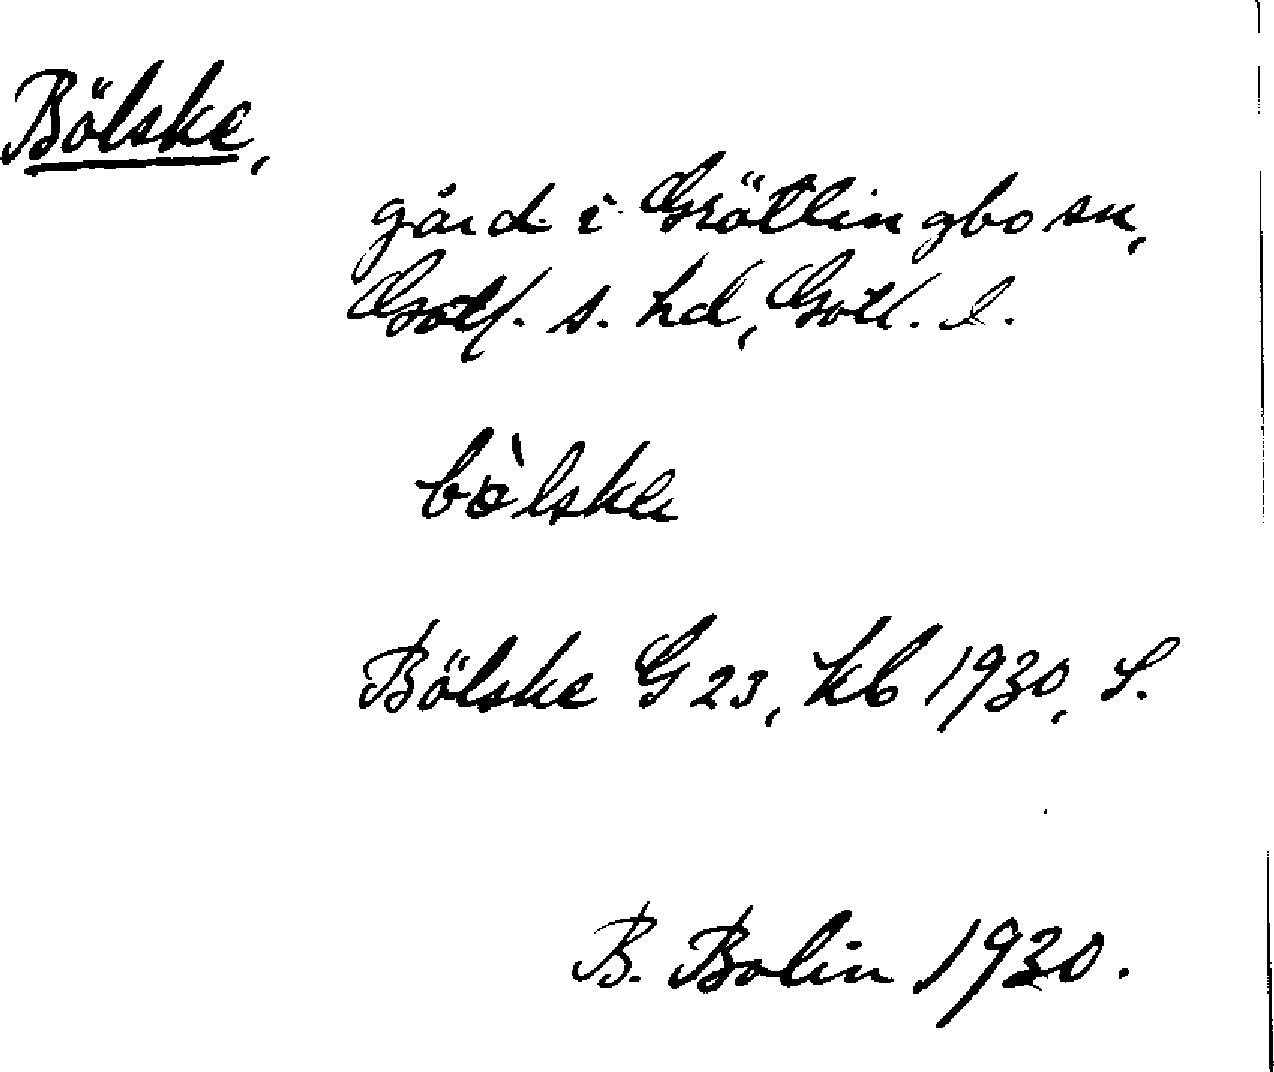 Bölske,
gård i Grötlingbo sn,
Gotl. s. hd, Gotl. l.
bö̀lske
Bölske G 23, kb 1930, S.
B. Bolin 1930.